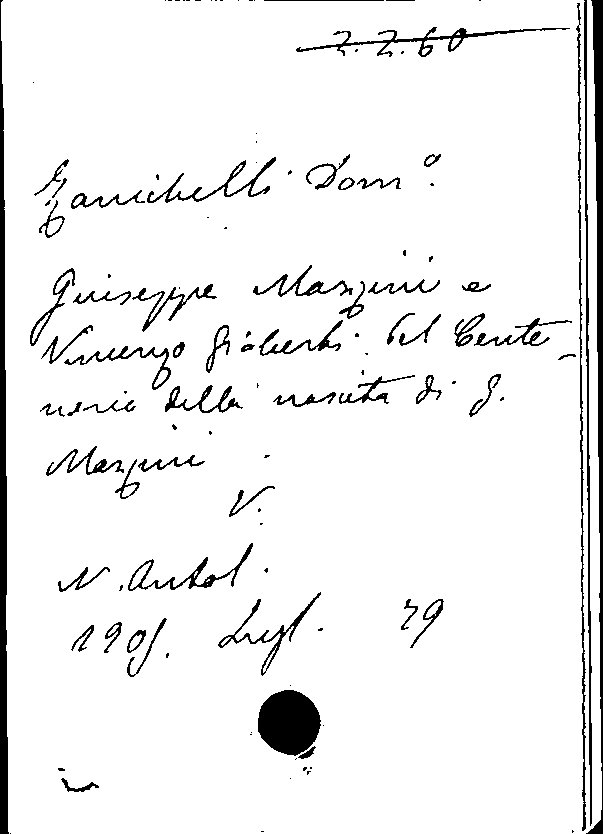 2.2.60
Zanichelli Domº.
Giuseppe Mazzini e
Vincenzo Gioberti. Pel Cente-
nario della nascita di G.
Mazzini
V.
N. Antol.
1905. Lugl. 79